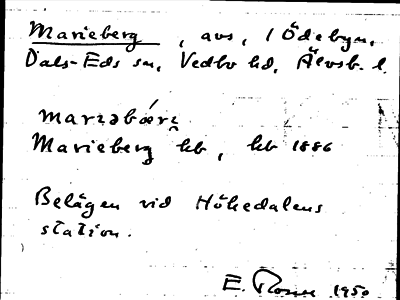 Marieberg, avs, / Ödebyn,
Dals-Eds sn, Vedbo hd, Älvsb. l.
Marieberg hb, hb 1886
Belägen vid Hökedalens
station.
E. 1950